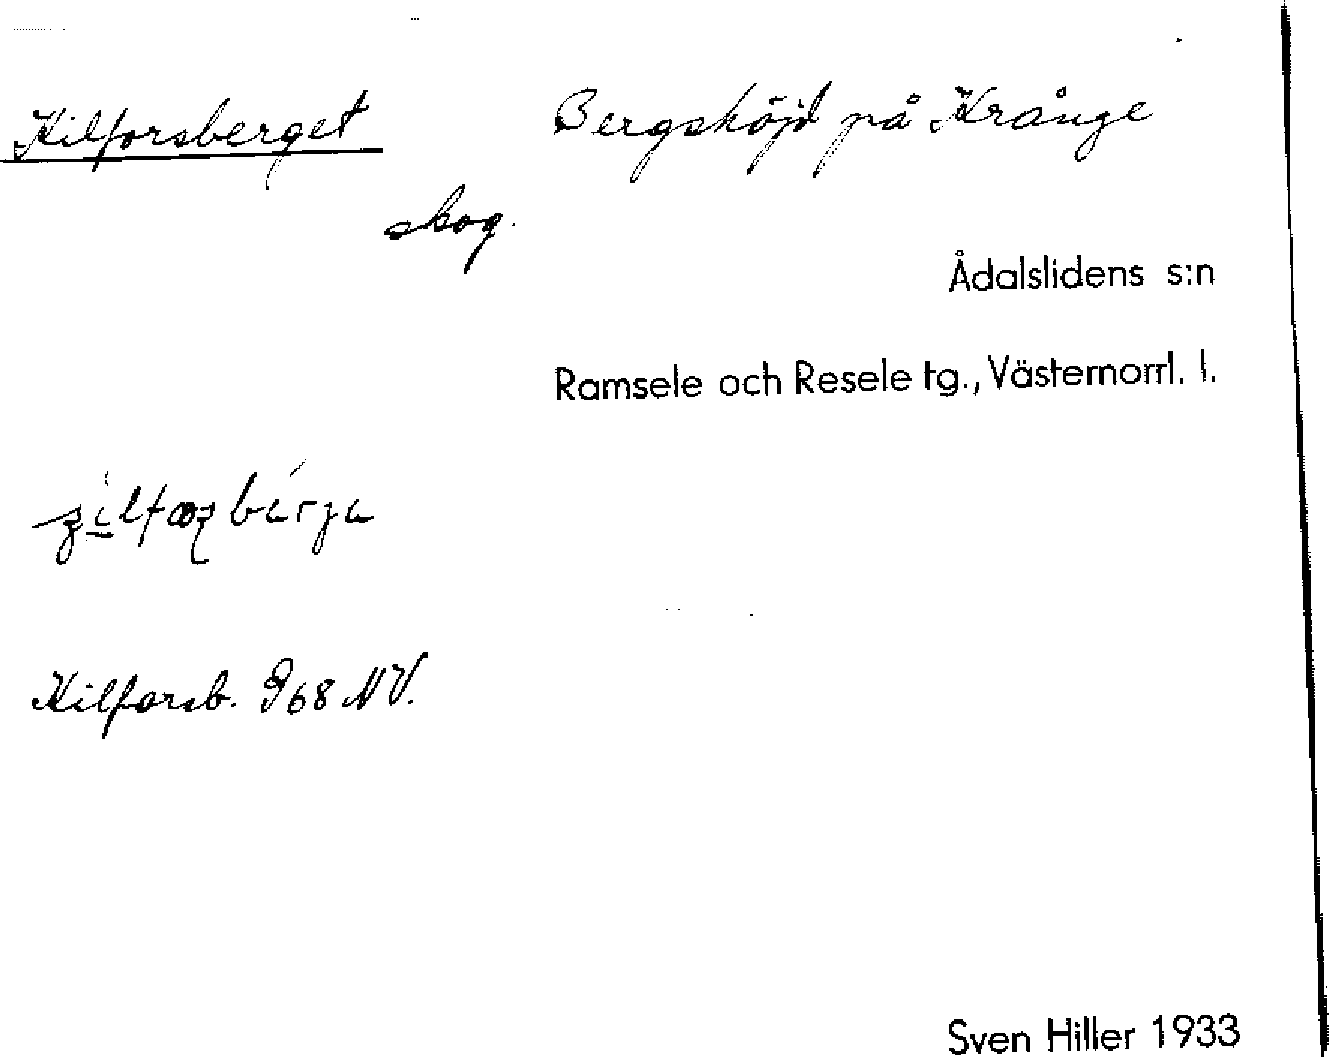 Kilforsberget Bergshöjd på Krånge
skog.
Ådalslidens s:n
Ramsele och Resele tg., Västernorrl. l.
Kilforsb. 968 NV.
Sven Hiller 1933